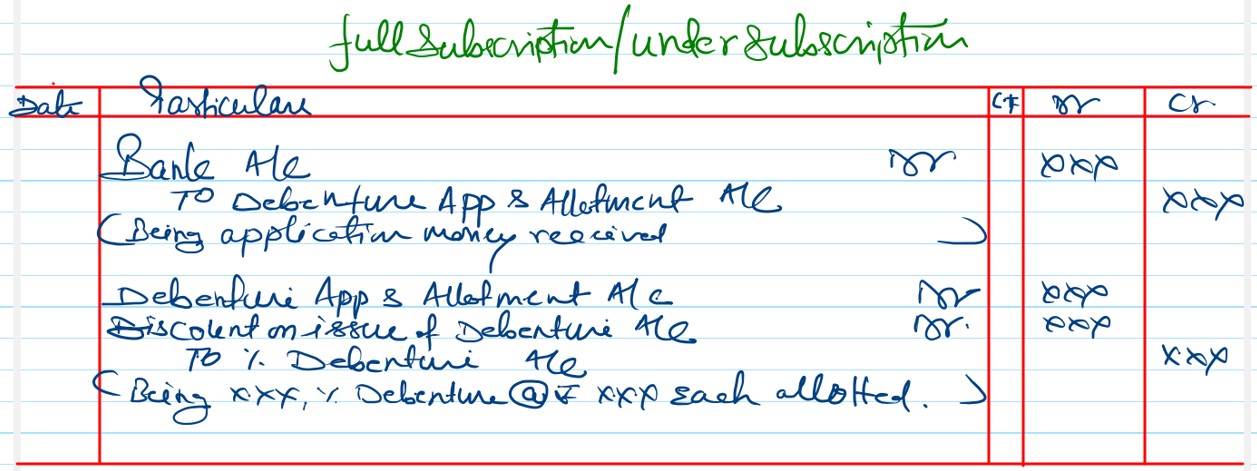 full subscription/under subscription
Date Particulars LF Dr Cr.
Bank A/c Dr xxx
TO Debenture App & Allotment A/c xxx
(Being application money received )
Debenture App & Allotment A/c Dr xxx
Discount on issue of Debenture A/c Dr. xxx
To % Debenture A/c xxx
(Being xxx, % Debenture @ ₹ xxx each allotted. )